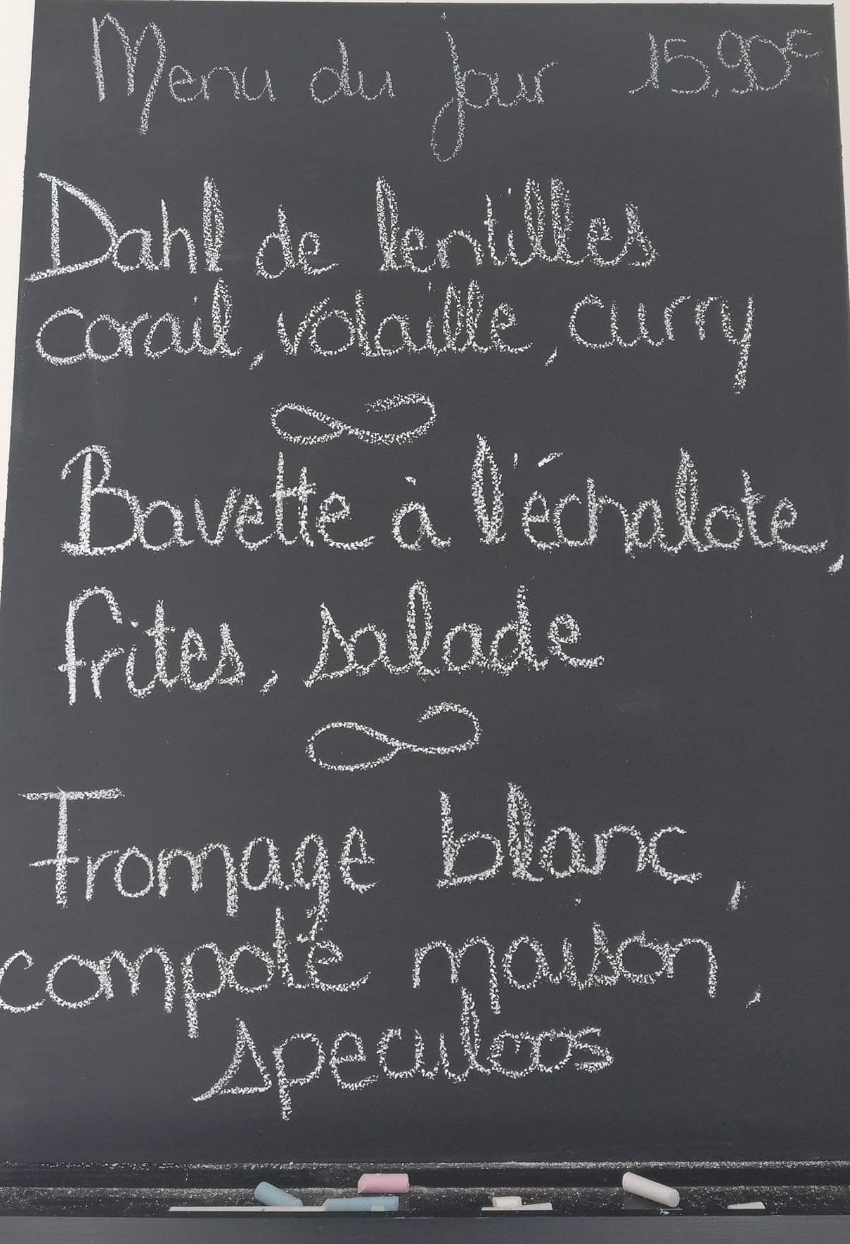 Menu du jour 15,90€
Dahl de lentilles
corail, volaille, curry
Bavette à l'échalote,
frites, salade
Fromage blanc,
compote maison,
speculoos